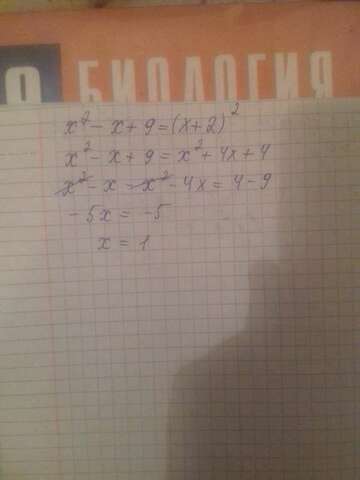 9 БИОЛОГИЯ
x² - x + 9 = (x+2)²
x² - x + 9 = x² + 4x + 4
x² - x = x² - 4x = 4 - 9
-5x = -5
x = 1